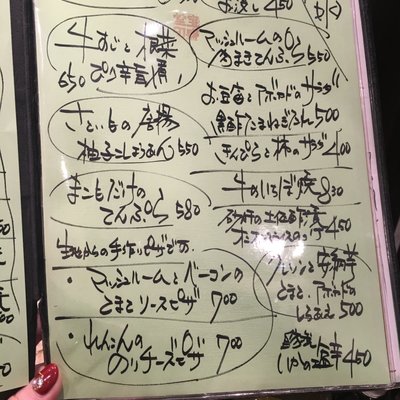 牛すじと根菜
ぴり辛 煮 650
さといもの唐揚
柚子こしょうあん 550
まこもだけの
てんぷら 580
生地からの手作りピザです。
・マッシュルームとベーコンの
とまとソースピザ 700
・れんこんの
のりチーズピザ 700
お浸し 450
マッシュルームの
肉まきてんぷら 550
お豆富とアボカドのサラダ
たまねぎ 500
きんぴらと柿のサラダ 400
牛のいちぼ焼 830
砂肝の土佐
450
オレンジと安納芋
とまと、アボカドの
しらあえ 500
450